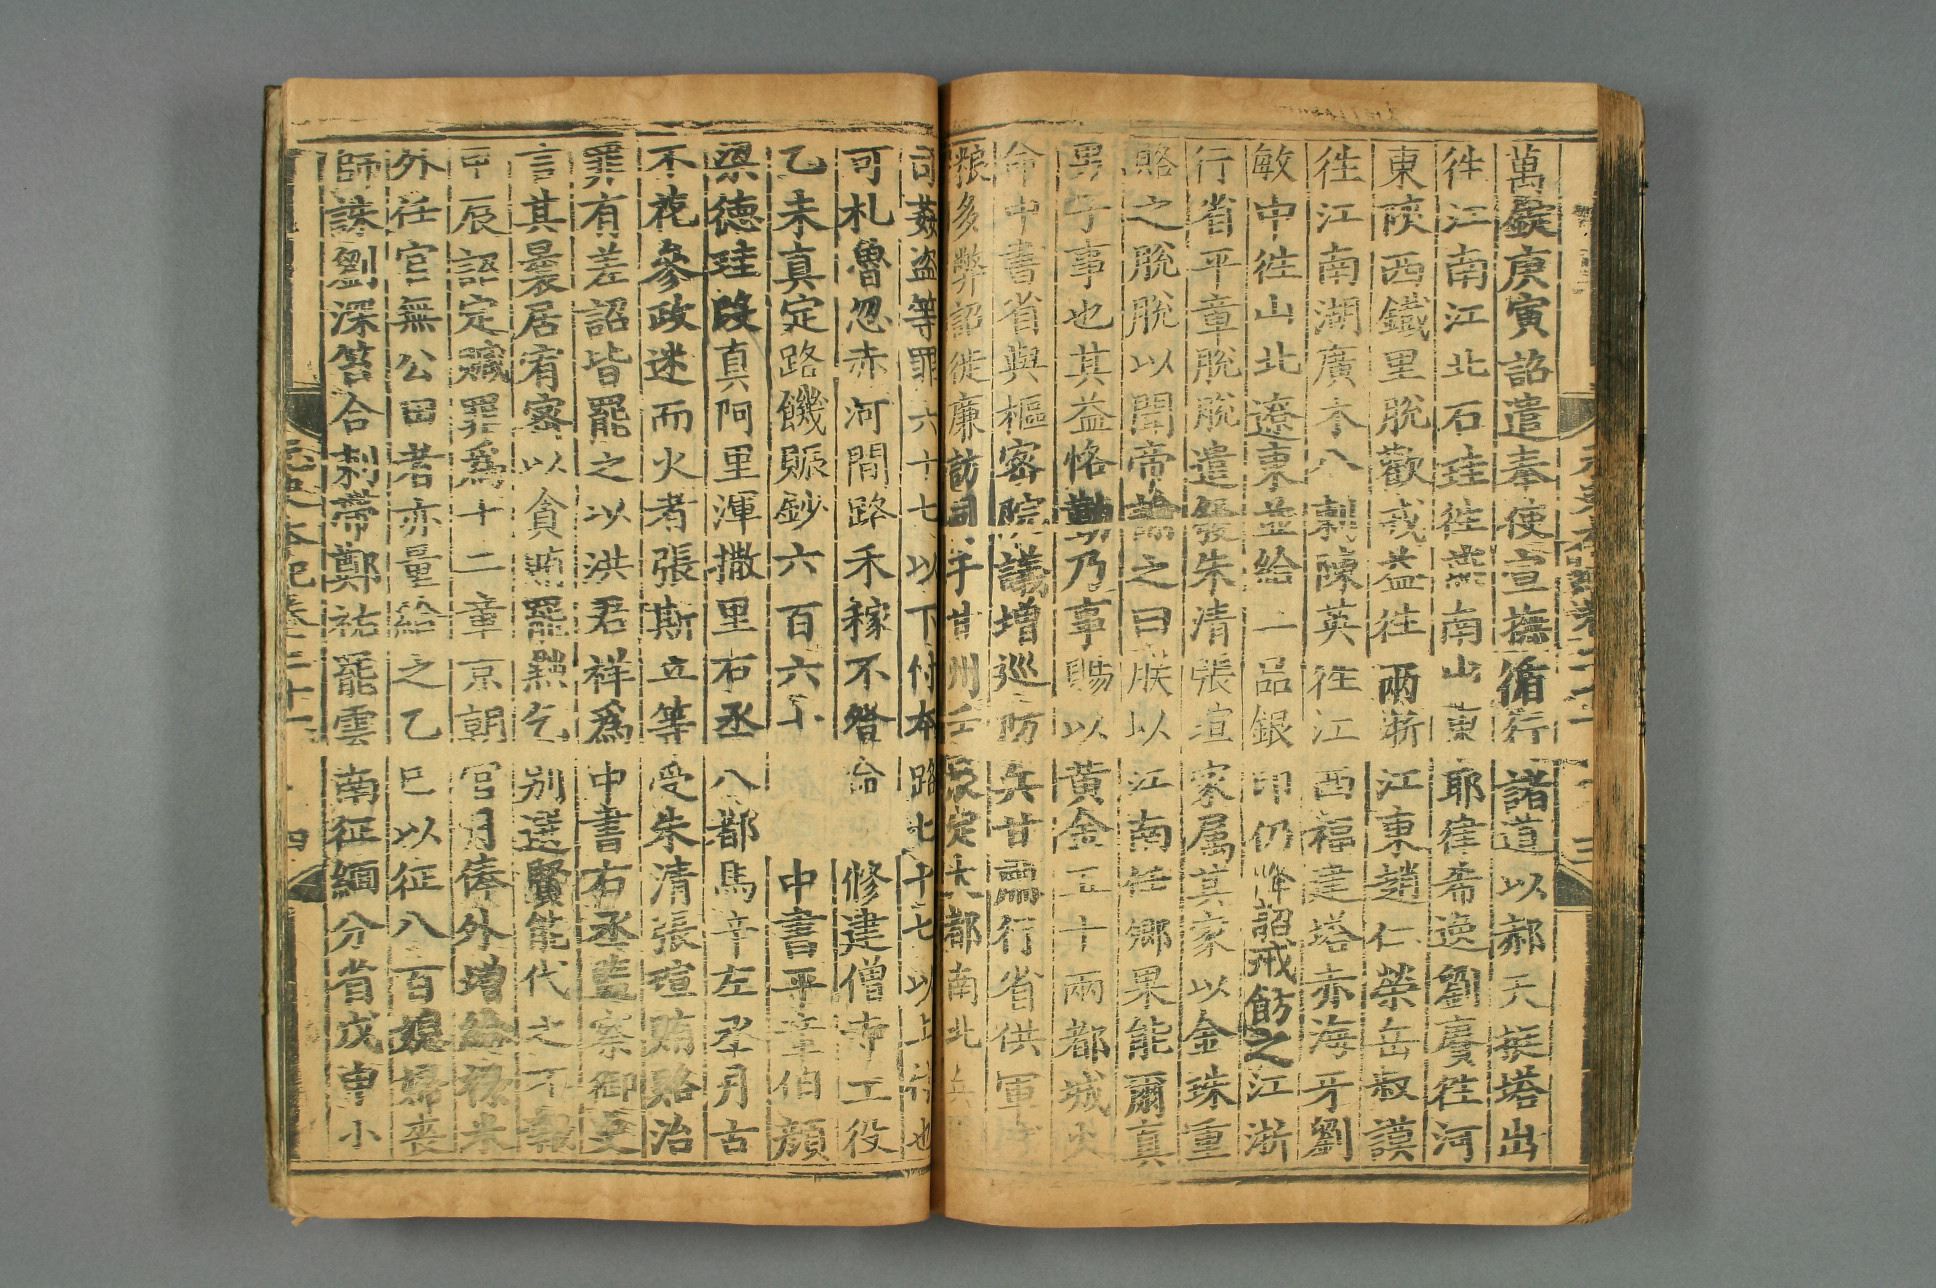 萬錠庚寅詔遣奉使宣撫循行諸道以郝天挺塔出
徃江南江北石珪徃燕南山東耶律希逸劉賡徃河
東陝西鐵里脫歡戎益徃兩浙江東趙仁榮岳叔謨
徃江南湖廣木八剌陳英徃江西福建塔赤海牙劉
敏中徃山北遼東並給二品銀印仍降詔戒飭之江浙
行省平章脫脫遣發朱清張瑄家屬其家以金珠重
賂之脫脫以聞帝諭之曰朕以江南任卿果能爾真
男子事也其益恪勤乃事賜以黃金五十兩都城火
命中書省與樞密院議增巡防兵甘肅行省供軍
粮多弊詔徙廉訪司于甘州壬辰定大都南北兵
司姦盜等罪六十七以下付本路七十七以上付也
可札魯忽赤河間路禾稼不登命修建僧寺工役
乙未真定路饑賑鈔六百六十中書平章伯顏
梁德珪段真阿里渾撒里右丞八都馬辛左丞月古
不花參政迷而火者張斯立等受朱清張瑄賄賂治
罪有差詔皆罷之以洪君祥爲中書右丞監察御史
言其曩居宥密以貪賄罷黜乞別選賢能代之不報
甲辰詔定贓罪爲十二章京朝官月俸外增給祿米
外任官無公田者亦量給之乙巳以征八百媳婦喪
師誅劉深笞合剌帶鄭祐罷雲南征緬分省戊申小
元史本紀卷二十一 四